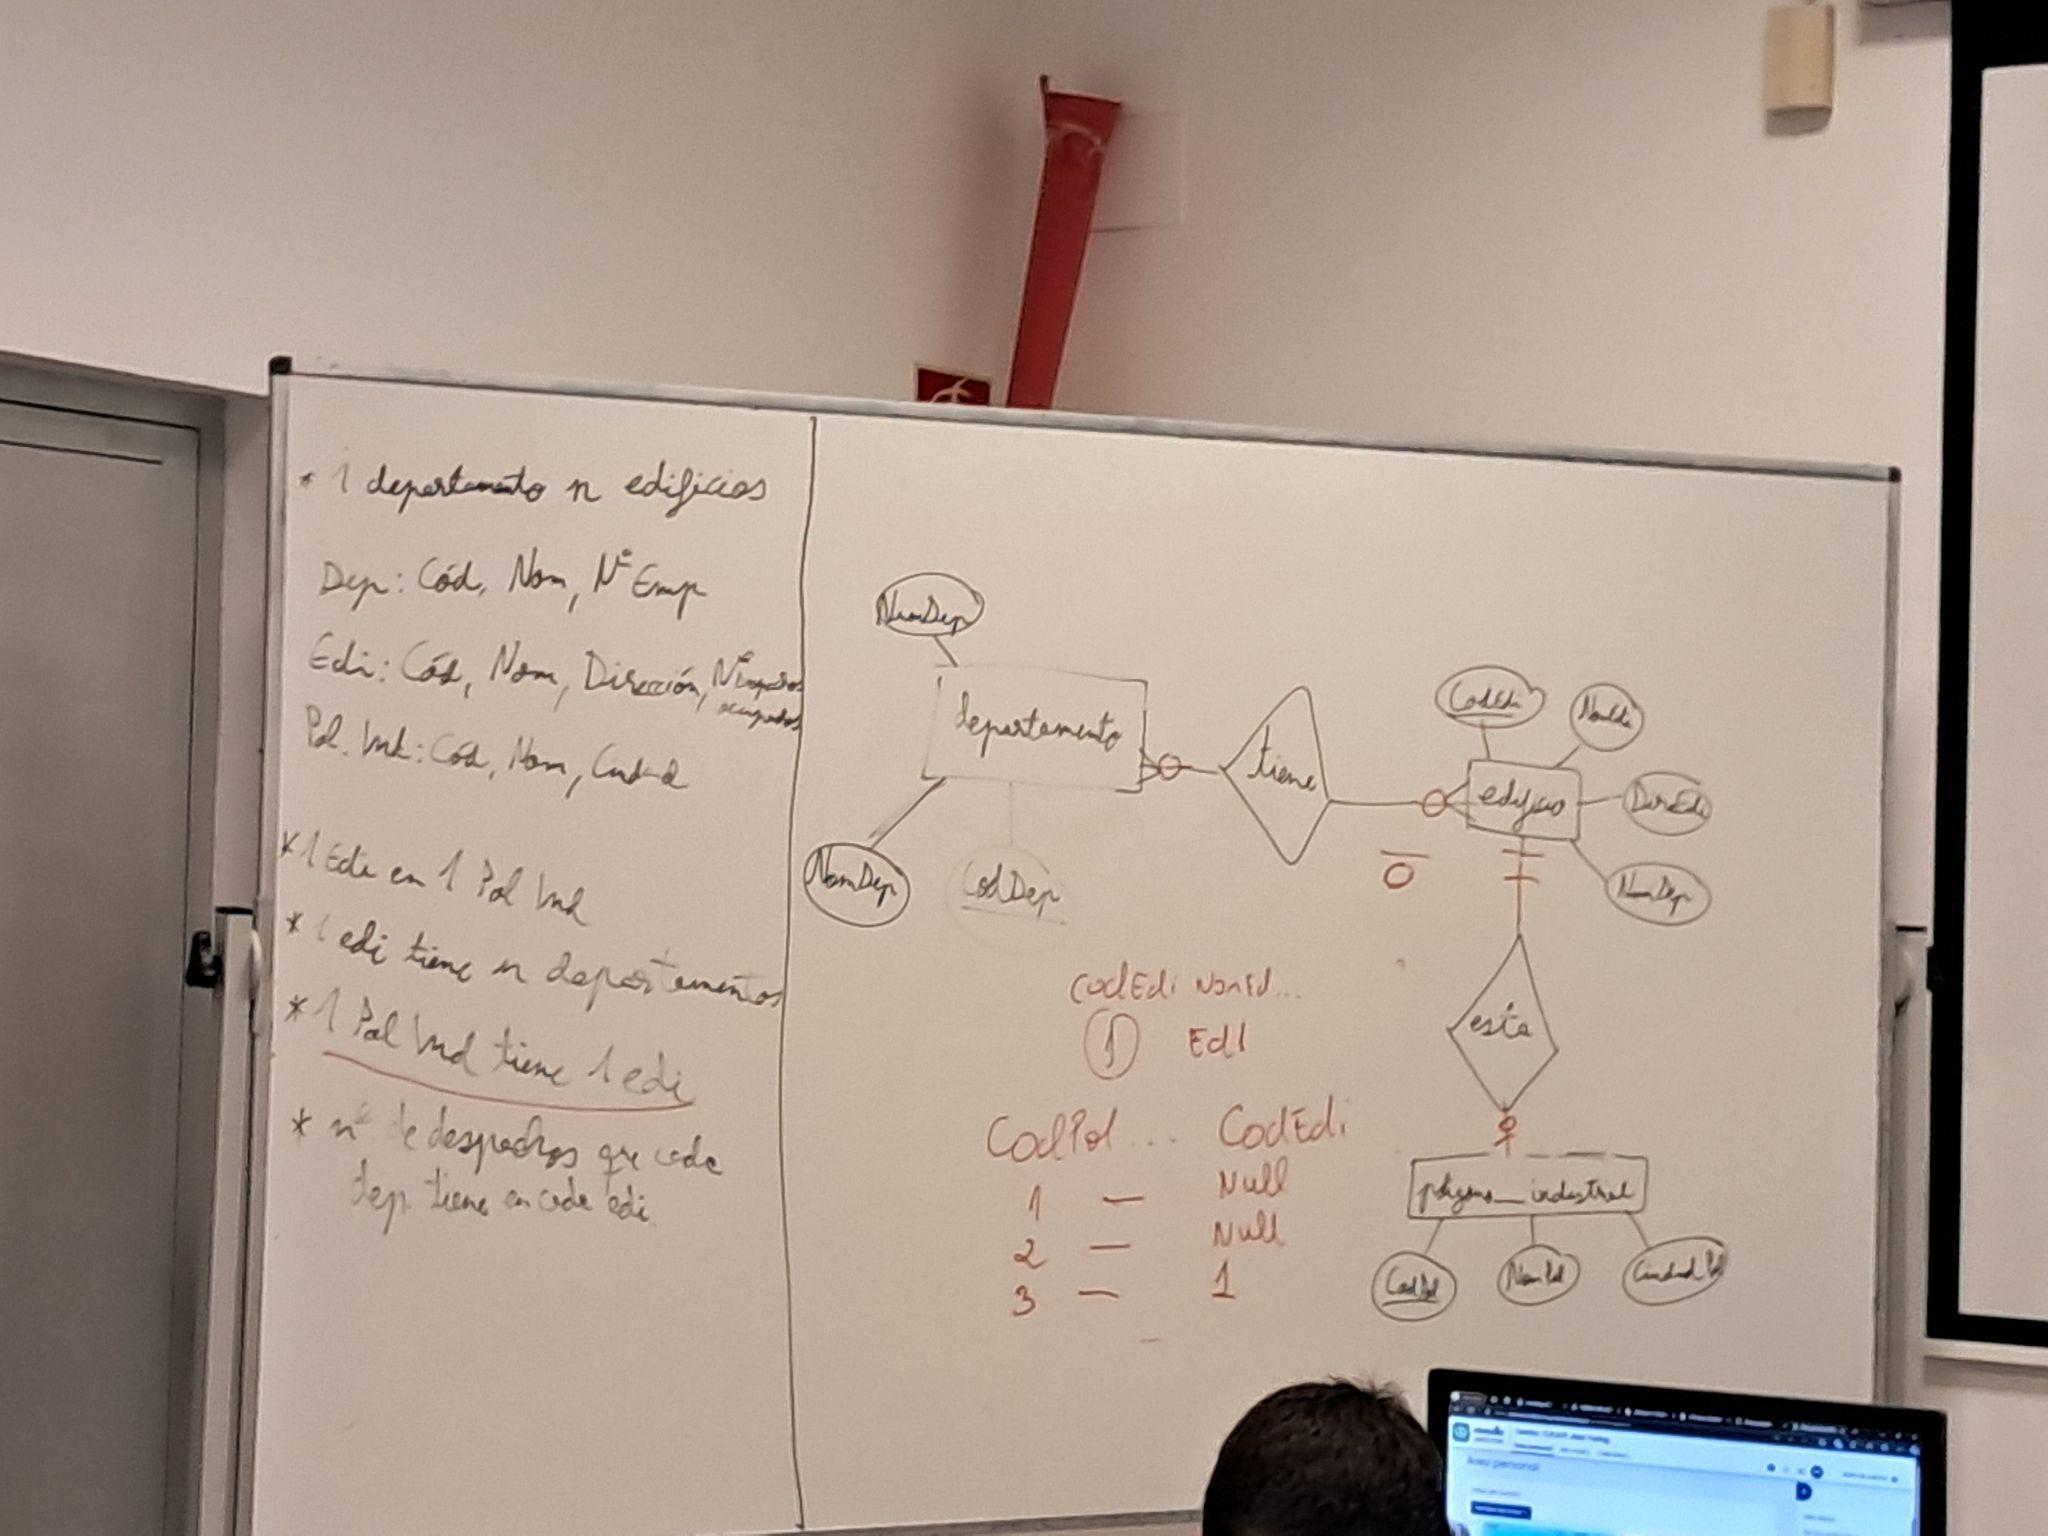 * 1 departamento n edificios
Dep: Cód, Nom, Nº Emp
Edi: Cód, Nom, Dirección, Nº
ocupados
Pol. Ind: Cód, Nom, Ciudad
* 1 Edi en 1 Pol Ind
* 1 edi tiene n departamentos
* 1 Pol Ind tiene 1 edi
* nº de despachos que cada
dep tiene en cada edi
NumDep
departamento
NomDep
CodDep
tiene
CodEdi
NomEdi
edificio
DirEdi
NumDep
esta
poligono_industrial
CodPol
NomPol
CiudadPol
CodEdi NomEd...
1 Ed1
CodPol ... CodEdi
1 — Null
2 — Null
3 — 1
Área personal